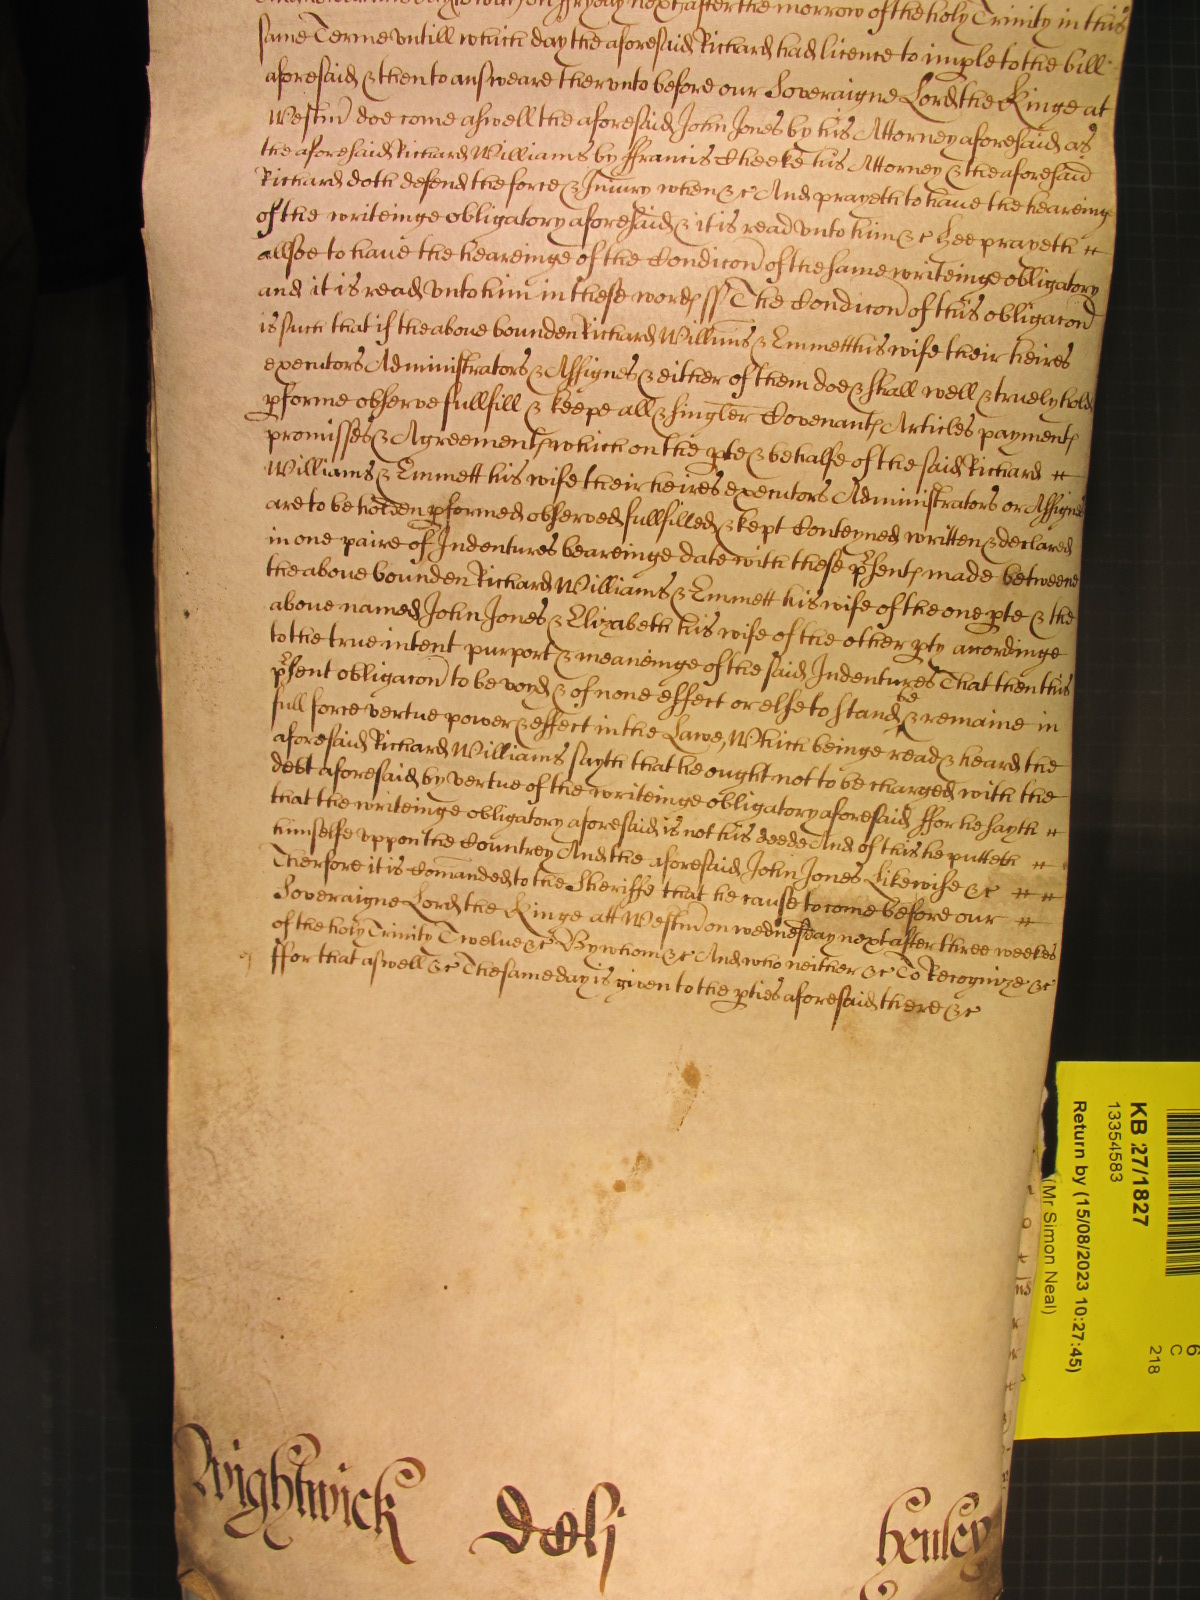 on ffryday next after the morrow of the holy Trinity in this
same Terme untill which day the aforesaid Richard had licence to imple to the bill
aforesaid & then to answeare therunto before our Soveraigne Lord the Kinge at
Westm doe come aswell the aforesaid John Jones by his Attorney aforesaid as
the aforesaid Richard Williams by ffrancis Cheeke his Attorney & the aforesaid
Richard doth defend the force & Iniury when &c And prayeth to have the heareing
of the writeinge obligatory aforesaid & it is read unto him &c hee prayeth
allsoe to haue the heareinge of the Condicon of the same writeinge obligatory
and it is read unto him in these words ss The Condicon of this obligacon
is such that if the aboue bounden Richard Willims & Emmett his wife their heires
executors Administrators & Assignes & either of them doe & shall well & truely hold
pforme observe fullfill & keepe all & singler Covenants Articles payments
promisses & Agreements which on the pte & behalfe of the said Richard
Williams & Emmett his wife their heires executors Administrators or Assignes
are to be holden pformed observed fullfilled & kept Conteyned written & declared
in one paire of Indentures beareinge date with these psents made betweene
the aboue bounden Richard Williams & Emmett his wife of the one pte & the
aboue named John Jones & Elizabeth his wife of the other pty accordinge
to the true intent purport & meaneinge of the said Indentures That then this
psent obligacon to be voyd & of none effect or else to stand & remaine in
full force vertue power & effect in the Lawe, Which beinge read & heard the
aforesaid Richard Williams sayth that he ought not to be charged with the
debt aforesaid by vertue of the writeinge obligatory aforesaid ffor he sayth
that the writeinge obligatory aforesaid is not his deede And of this he putteth
himselfe uppon the Countrey And the aforesaid John Jones Likewise &c
Therfore it is Comanded to the Sheriffe that he cause to come before our
Soveraigne Lord the Kinge att Westm on wednesday next after three weekes
of the holy Trinity Twelve &c By whom &c And who neither &c To Recognize &c
ffor that aswell &c The same day is given to the pties aforesaid there &c
Wightwick
Henley
KB 27/1827
13354583
Return by (15/08/2023 10:27:45)
(Mr Simon Neal)
6
C
218